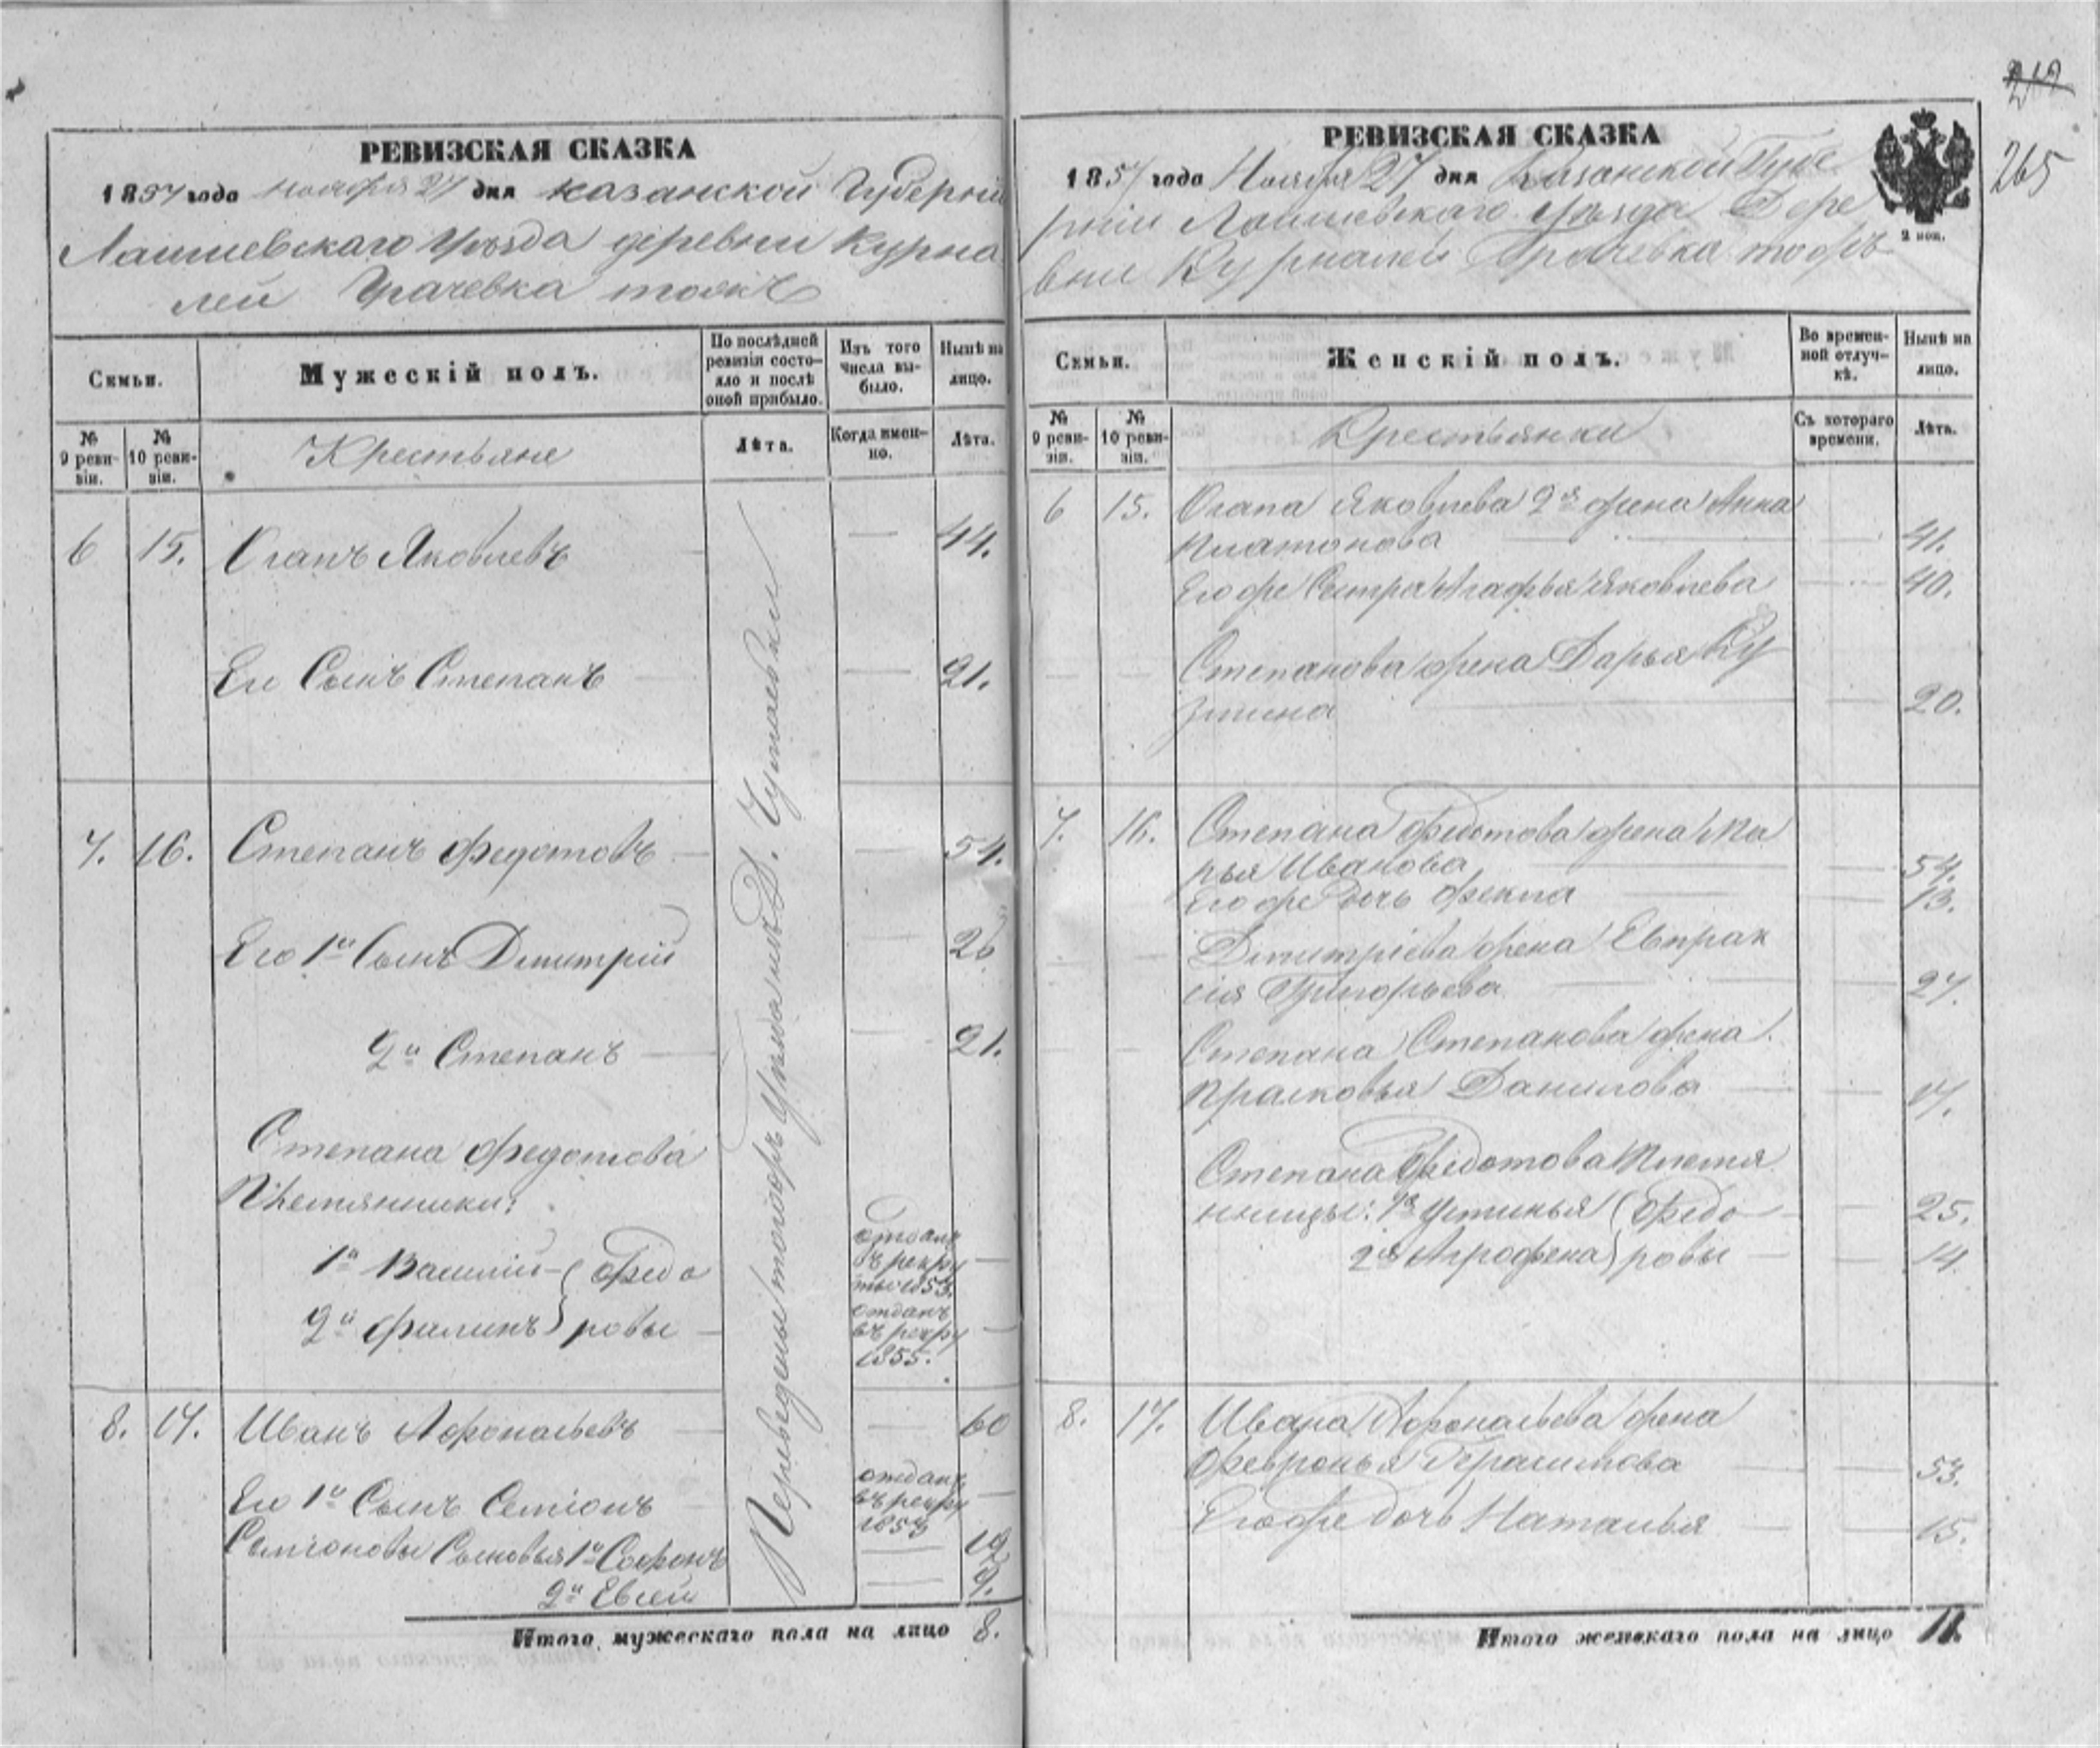 212
265
РЕВИЗСКАЯ СКАЗКА
1857 года ноября 27 дня Казанской Губерніи
Лаишевскаго Уѣзда деревни Курна
лей Грачевка тожъ
Семьи.
Мужескій полъ.
По послѣдней ревизіи состо-
яло и послѣ
оной прибыло.
Изъ того
числа вы-
было.
Нынѣ на
лицо.
№
9 реви-
зіи.
№
10 реви-
зіи.
Крестьяне
Лѣта.
Когда имен-
но.
Лѣта.
6 15. Агапъ Яковлевъ — 44.
Его Сынъ Степанъ — 21.
7. 16. Степанъ Федотовъ — 54.
Его 1й Сынъ Дмитрій — 26
2й Степанъ — 21.
Степана Федотова
Племянники:
1й Василий Федо
отданъ
въ рекру
ты 1853.
2й Филипъ ровы
отданъ
въ рекру
1855.
8. 17. Иванъ Афонасьевъ — 60
Его 1й Сынъ Семіонъ
отданъ
въ рекру
185
Семіоновы Сыновья 1й Софонъ — 12
2й Евсей — 9.
Переведены тогожъ Уѣзда
Итого мужескаго пола на лицо 8.
РЕВИЗСКАЯ СКАЗКА
1857 года Ноября 27 дня Казанской Губе
рніи Лаишевскаго Уѣзда Дере
вни Курналей Грачевка тожъ
2 коп.
Семьи.
Женскій полъ.
Во времен-
ной отлуч-
кѣ.
Нынѣ на
лицо.
№
9 реви-
зіи.
№
10 реви-
зіи.
Крестьянки
Съ котораго
времени.
Лѣта.
6 15. Агапа Яковлева 2я жена Анна
Платонова — 41.
Его же Сестра Агафья Яковлева — 40.
Степанова жена Дарья Ку
змина — 20.
7. 16. Степана Федотова жена Ма
рья Иванова — 54.
Его же дочь Фекла — 13.
Дмитріева жена Евпрак
сія Григорьева — 27.
Степана Степанова жена
Прасковья Данилова — 17.
Степана Федотова Племя
нницы: 1я Устинья Федо — 25.
2я Агрофена ровы — 14.
8. 17. Ивана Афонасьева жена
Февронья Герасимова — 53.
Его же дочь Наталья — 15.
Итого женскаго пола на лицо 11.